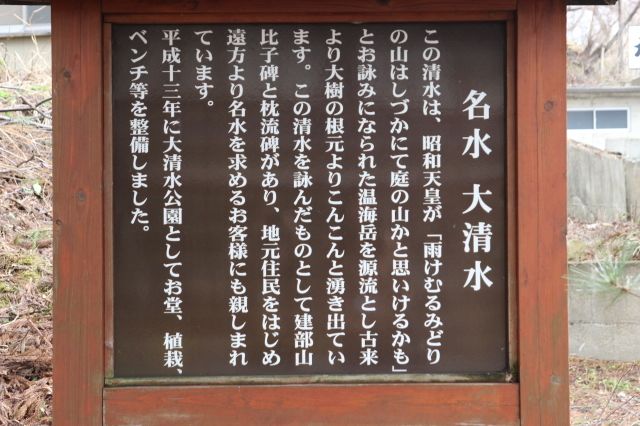 名水 大清水
この清水は、昭和天皇が「雨けむるみどり
の山はしづかにて庭の山かと思いけるかも」
とお詠みになられた温海岳を源流とし古来
より大樹の根元よりこんこんと湧き出てい
ます。この清水を詠んだものとして建部山
比子碑と枕流碑があり、地元住民をはじめ
遠方より名水を求めるお客様にも親しまれ
ています。
平成十三年に大清水公園としてお堂、植栽、
ベンチ等を整備しました。